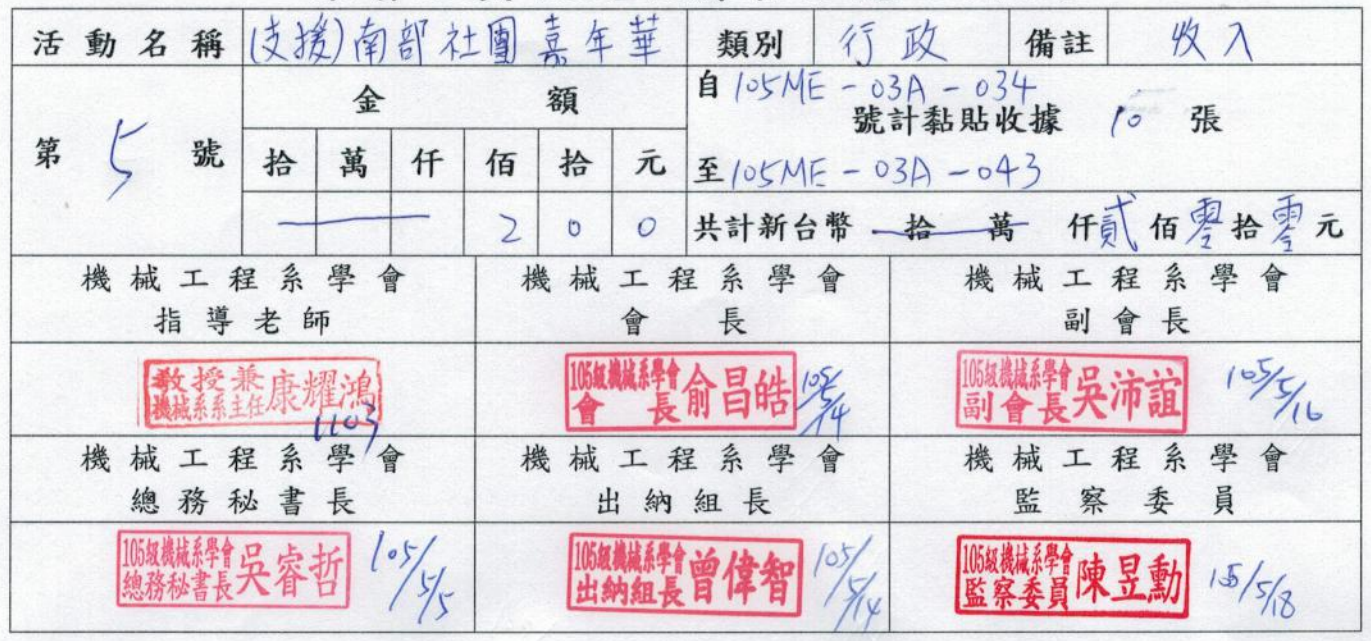 活動名稱 (支援)南部社團嘉年華 類別 行政 備註 收入
第 5 號 金額 自 105ME-03A-034
號計黏貼收據 10 張
拾 萬 仟 佰 拾 元 至 105ME-03A-043
2 0 0 共計新台幣 拾 萬 仟 貳 佰 零 拾 零 元
機械工程系學會 機械工程系學會 機械工程系學會
指導老師 會長 副會長
教授兼
機械系系主任 康耀鴻 1103
105級機械系學會
會長 俞昌皓 105/5/14
105級機械系學會
副會長 吳沛誼 105/5/16
機械工程系學會 機械工程系學會 機械工程系學會
總務秘書長 出納組長 監察委員
105級機械系學會
總務秘書長 吳睿哲 105/5/5
105級機械系學會
出納組長 曾偉智 105/5/14
105級機械系學會
監察委員 陳昱勳 105/5/18